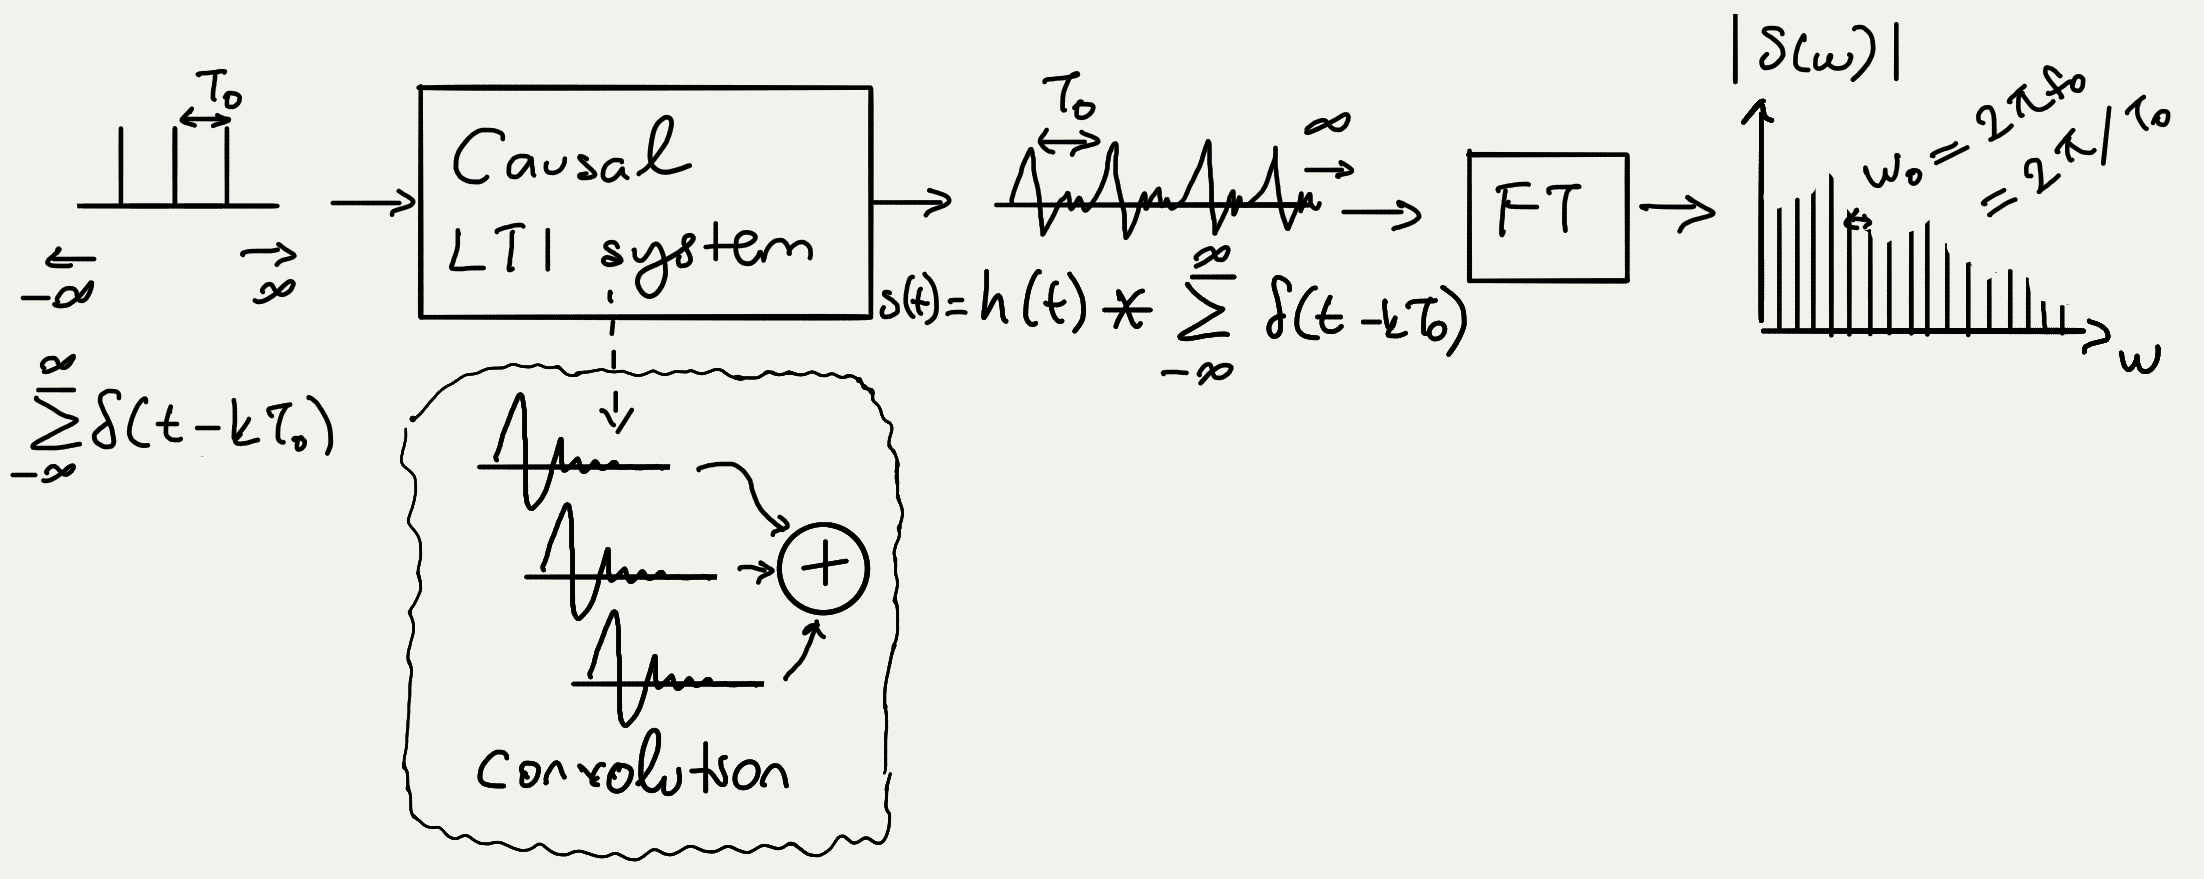 T₀
-∞
∞
∞
∑ δ(t - kT₀)
-∞
Causal
LTI system
Convolution
T₀
∞
s(t) = h(t) * ∑ δ(t - kT₀)
∞
-∞
FT
|S(ω)|
ω₀ = 2πf₀
= 2π/T₀
ω